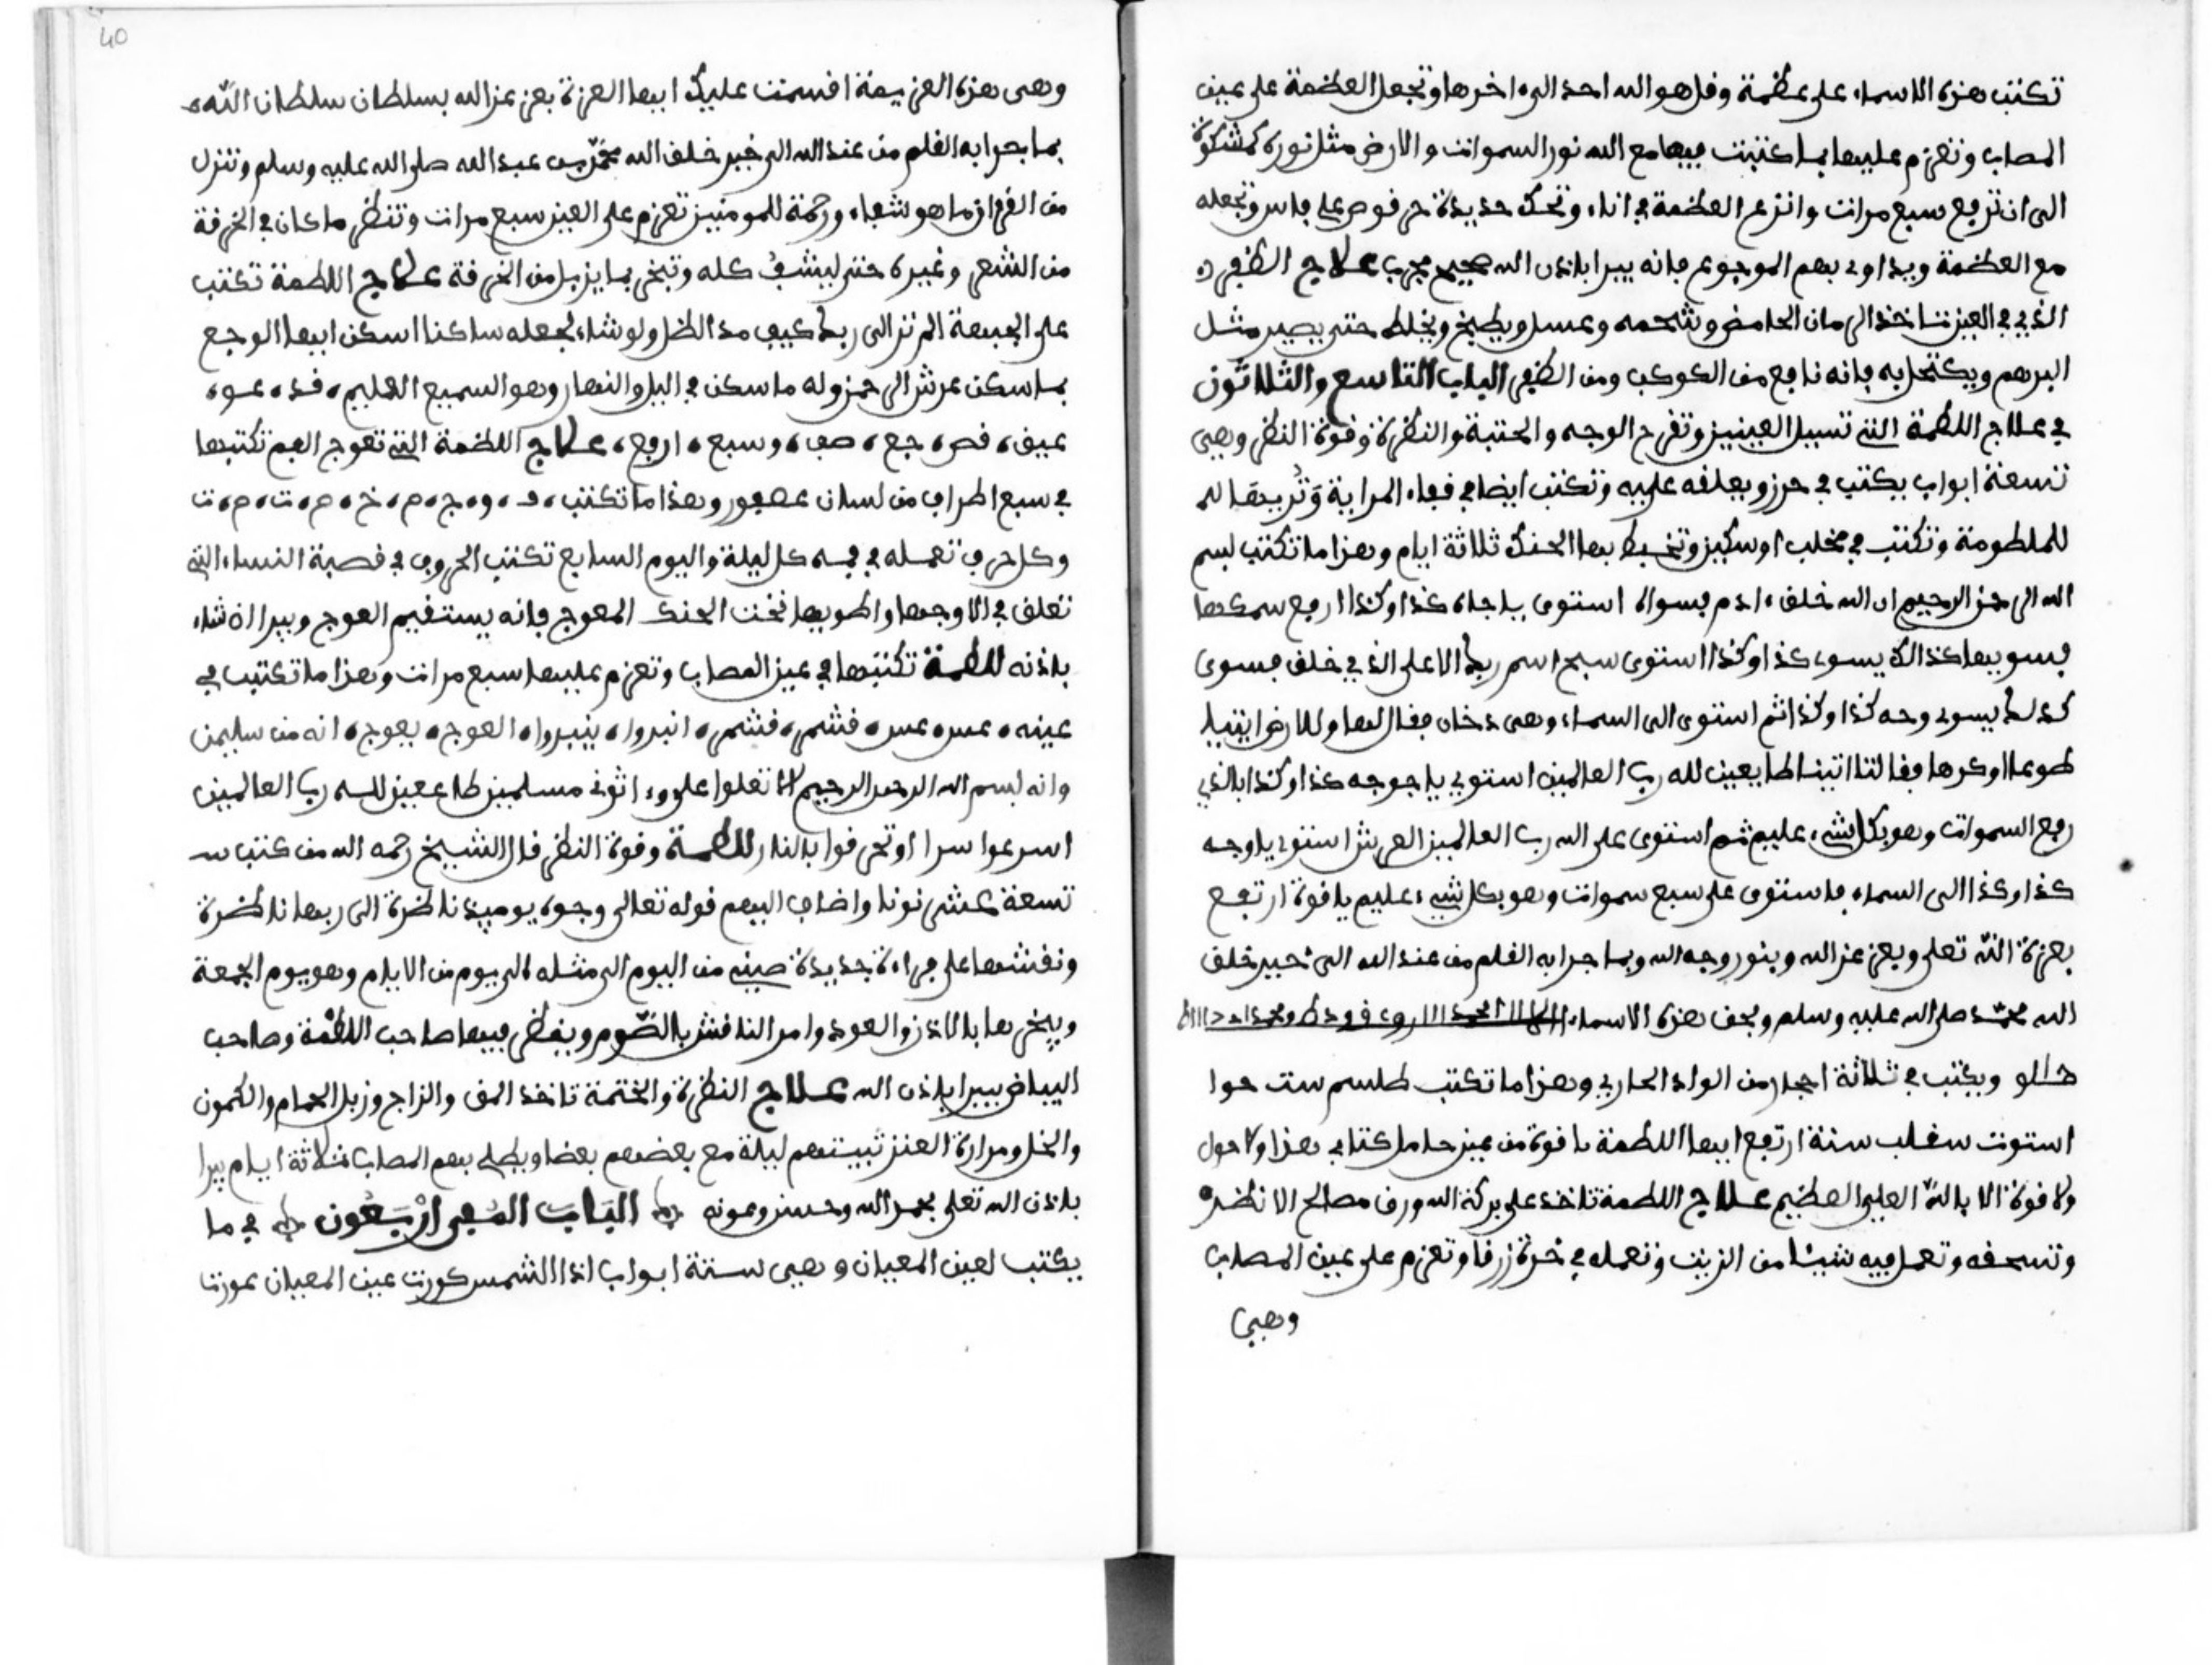 تكتب هذه الاسماء على عظمة وقل هو الله احد الى اخرها وتجعل العظمة على عين
المصاب وتعزم عليها بما كتبت فيها مع الله نور السموات والارض مثل نوره كمشكوة
الى ان ترفع سبع مرات وانزع العظمة في اناء وتحك حديدة حرقوص على فاس وتجعله
مع العظمة ويداوى بهم الموجوع فانه يبرا باذن الله صحيح مجرب علاج الظفر
الذي في العين تاخذ الرمان الحامض وشحمه وعسل ويطبخ ويخلط حتى يصير مثل
المرهم ويكتحل به فانه نافع من الكوكب ومن الظفر الباب التاسع والثلاثون
في علاج اللطمة التي تسيل العينين وتفرح الوجه والنظرة وقوة النظر وهي
تسعة ابواب يكتب في حرز ويعلقه عليه وتكتب ايضا في فعاء المراية وتريها لل
للملطومة وتكتب في مخلب او سكين وتخيط بها الحنك ثلاثة ايام وهذا ما تكتب بسم
الله الرحمن الرحيم ان الله خلف ادم فسواه استوى كذا وكذا ارفع سمكها
فسويها كذالك يسوى كذا وكذا استوى سبح اسم ربك الاعلى الذي خلق فسوى
كذلك يسوى وجه كذا وكذا ثم استوى الى السماء وهي دخان فقال لها وللارض ايتيا
طوعا او كرها فقالتا اتينا طايعين لله رب العالمين استوى يا حوجه كذا وكذا بالذي
رفع السموات وهو بكل شيء عليم ثم استوى على الله رب العالمين العرش استوى يا وجه
كذا وكذا الى السماء فاستوى على سبع سموات وهو بكل شيء عليم يا قوة ارتفع
بعزة الله تعلى وبعز عز الله وبنور وجه الله وبما جرا به القلم من عند الله الى خير خلق
الله محمد صلى الله عليه وسلم وبحق هذه الاسماء
ويكتب في ثلاثة احجار من الواد الحارب وهذا ما تكتب طلسم ست حوا
استوت سغلب سنة ارتفع ايها اللطمة يا قوة من عين حامل كتابي هذا ولا حول
ولا قوة الا بالله العلي العظيم علاج اللطمة تاخذ على بركة الله ورق مصالح الانظر
وتسحقه وتعمل فيه شيئا من الزيت وتعمله في خرقة زرقا وتعزم على عين المصاب
وهي
40
وهي هذه العزيمة اقسمت عليك ايها العزة بعز عز الله بسلطان سلطان الله
بما جرا به القلم من عند الله الى خير خلق الله محمد بن عبد الله صلى الله عليه وسلم وننزل
من القرءان ما هو شفاء ورحمة للمومنين تعزم على العين سبع مرات وتنظر ما كان في الخرقة
من الشعر وغيره حتى ينشف كله وتبخر بما يزيل من الخرقة علاج اللطمة تكتب
على الجبهة الم تر الى ربك كيف مد الظل ولو شاء لجعله ساكنا اسكن ايها الوجع
بما سكن عرش الرحمن وله ما سكن في اليل والنهار وهو السميع العليم قد عو
عيق قص جع صب وسبع ارفع علاج اللطمة التي تعوج الفم تكتبها
في سبع اطراف من لسان عصفور وهذا ما تكتب و و ج م خ م ت م ت
وكل حرف تعمله في فمه كل ليلة واليوم السابع تكتب الحروف في قصبة النساء التي
تعلق في الاوجها واطويها تحت الحنك المعوج فانه يستقيم العوج ويبرا ان شاء
باذنه للطمة تكتبها في عين المصاب وتعزم عليها سبع مرات وهذا ما تكتب في
عينه عس عس فشم فشم انبروا ينبروا العوج بعوج انه من سليمن
وانه بسم الله الرحمن الرحيم الا تعلوا علي واتوني مسلمين طاععين لله رب العالمين
اسرعوا سرا او تحرقوا بالنار للطمة وقوة النظر قال الشيخ رحمه الله من كتب
تسعة عشر نونا واضاف اليهم قوله تعالى وجوه يوميذ ناضرة الى ربها ناظرة
ونقشها على مراءة جديدة صينيه من اليوم الى مثله الى يوم من الايام وهو يوم الجمعة
ويبخرها بالاذن والعود وامر النافش بالصوم وينظر فيها صاحب اللطمة وصاحب
البياض يبرا باذن الله علاج النظرة والختمة تاخذ المف والزاج وزبل الحمام والكمون
والخل ومرارة العنز تبيتهم ليلة مع بعضهم بعضا ويطلى بهم المصاب ثلاثة ايام يبرا
باذن الله تعلى بحمد الله وحسن عونه الباب الموفي اربعون في ما
يكتب لعين المعيان وهي ستة ابواب اذا الشمس كورت عين المعيان عورت